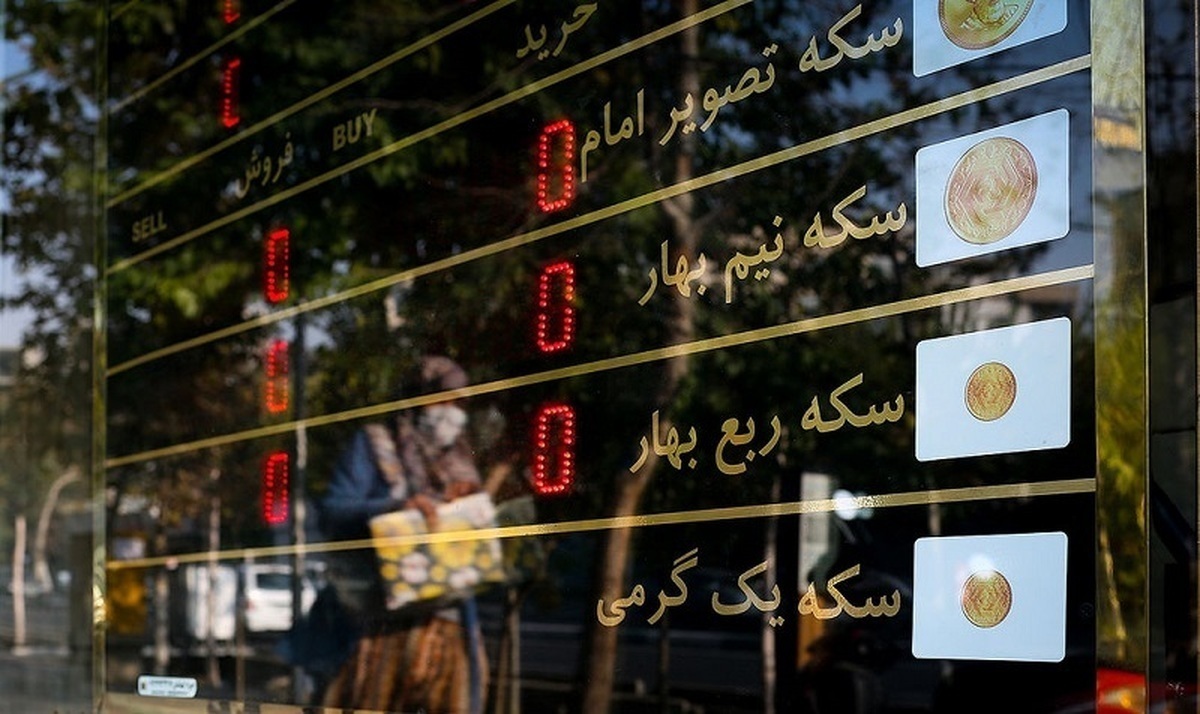 خرید BUY
فروش SELL
سکه تصویر امام 0 0
سکه نیم بهار 0 0
سکه ربع بهار 0 0
سکه یک گرمی